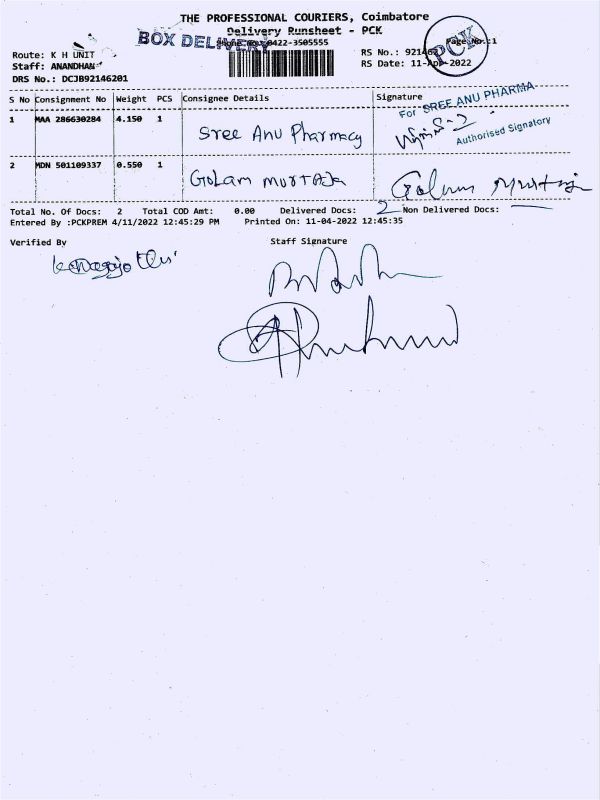 THE PROFESSIONAL COURIERS, Coimbatore
Delivery Runsheet - PCK
BOX DELIVERY
Phone No.: 0422-3505555
Page No.:1
PCK
Route: K H UNIT
Staff: ANANDHAN
RS Date: 11-Apr-2022
DRS No.: DCJB92146201
S No Consignment No Weight PCS Consignee Details Signature
1 MAA 286630284 4.150 1 Sree Anu Pharmacy
For SREE ANU PHARMA
Authorised Signatory
2 MDN 501109337 0.550 1 GOLAM MURTAJA Golam Murtaja
Total No. Of Docs: 2 Total COD Amt: 0.00 Delivered Docs: 2 Non Delivered Docs: —
Entered By :PCKPREM 4/11/2022 12:45:29 PM Printed On: 11-04-2022 12:45:35
Verified By Staff Signature